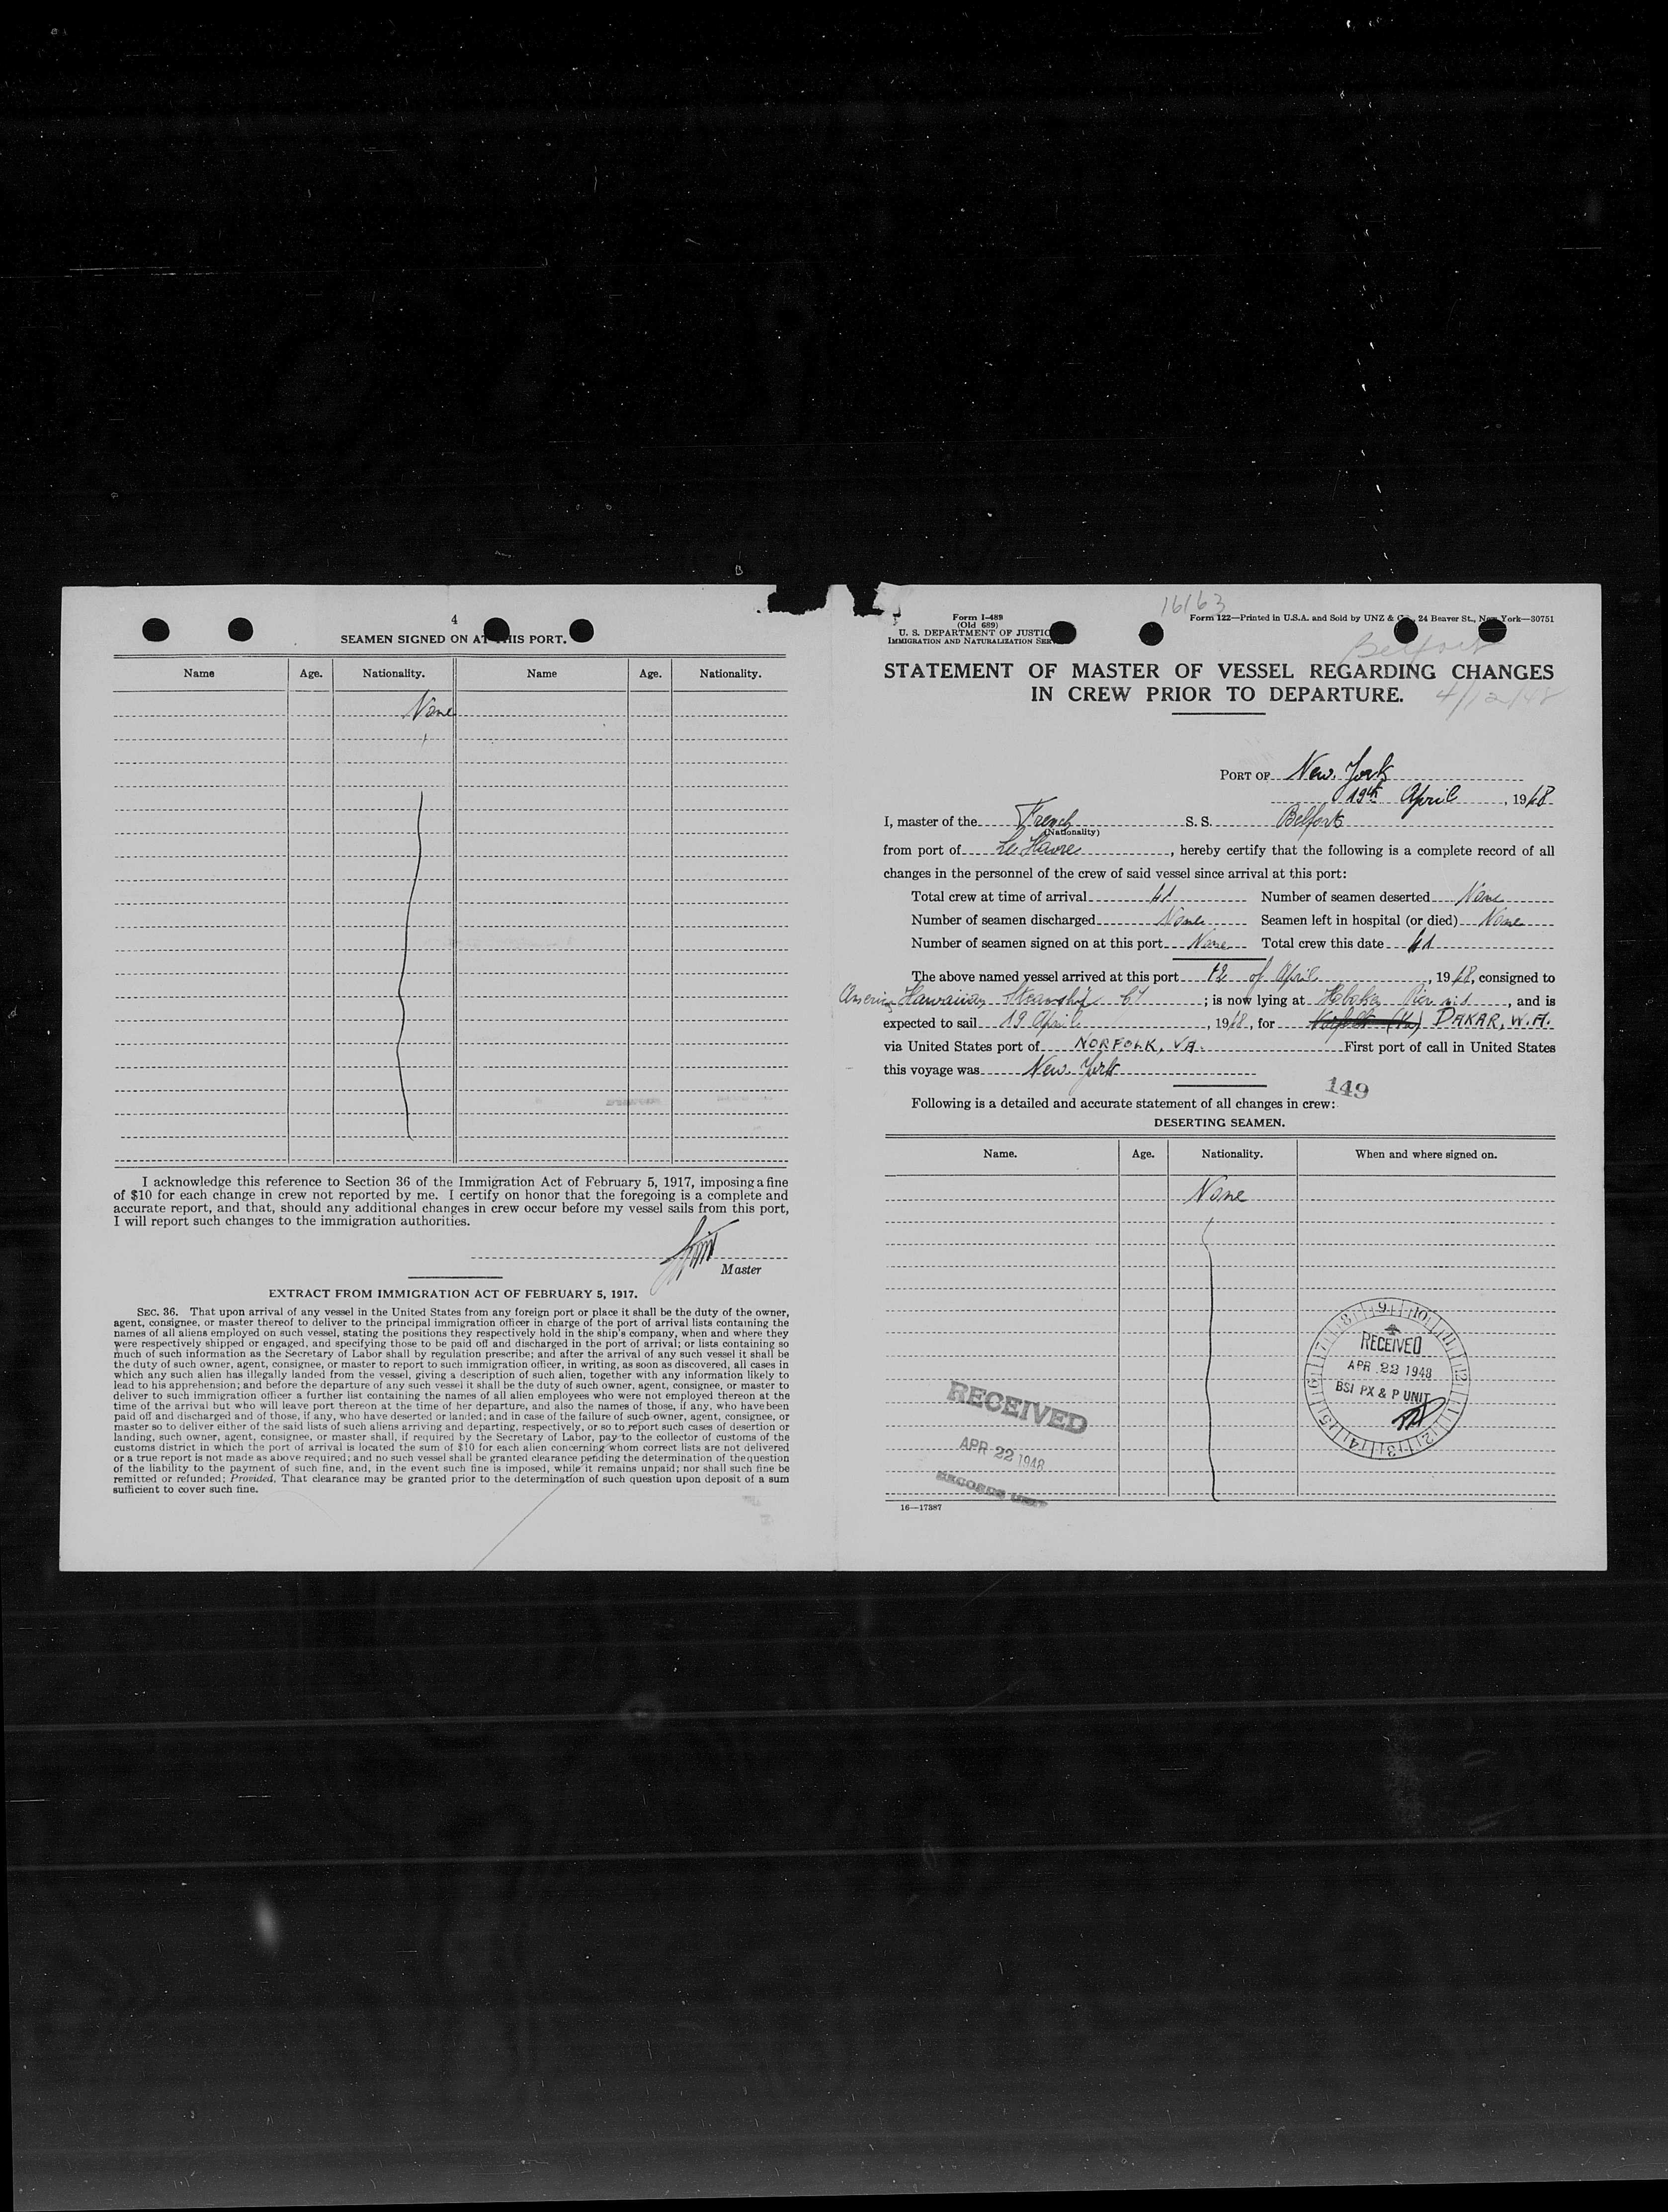 4
SEAMEN SIGNED ON AT THIS PORT.
Name Age. Nationality. Name Age. Nationality.
None
I acknowledge this reference to Section 36 of the Immigration Act of February 5, 1917, imposing a fine
of $10 for each change in crew not reported by me. I certify on honor that the foregoing is a complete and
accurate report, and that, should any additional changes in crew occur before my vessel sails from this port,
I will report such changes to the immigration authorities.
Master
EXTRACT FROM IMMIGRATION ACT OF FEBRUARY 5, 1917.
SEC. 36. That upon arrival of any vessel in the United States from any foreign port or place it shall be the duty of the owner,
agent, consignee, or master thereof to deliver to the principal immigration officer in charge of the port of arrival lists containing the
names of all aliens employed on such vessel, stating the positions they respectively hold in the ship's company, when and where they
were respectively shipped or engaged, and specifying those to be paid off and discharged in the port of arrival; or lists containing so
much of such information as the Secretary of Labor shall by regulation prescribe; and after the arrival of any such vessel it shall be
the duty of such owner, agent, consignee, or master to report to such immigration officer, in writing, as soon as discovered, all cases in
which any such alien has illegally landed from the vessel, giving a description of such alien, together with any information likely to
lead to his apprehension; and before the departure of any such vessel it shall be the duty of such owner, agent, consignee, or master to
deliver to such immigration officer a further list containing the names of all alien employees who were not employed thereon at the
time of the arrival but who will leave port thereon at the time of her departure, and also the names of those, if any, who have been
paid off and discharged and of those, if any, who have deserted or landed; and in case of the failure of such owner, agent, consignee, or
master so to deliver either of the said lists of such aliens arriving and departing, respectively, or so to report such cases of desertion or
landing, such owner, agent, consignee, or master shall, if required by the Secretary of Labor, pay to the collector of customs of the
customs district in which the port of arrival is located the sum of $10 for each alien concerning whom correct lists are not delivered
or a true report is not made as above required; and no such vessel shall be granted clearance pending the determination of the question
of the liability to the payment of such fine, and, in the event such fine is imposed, while it remains unpaid; nor shall such fine be
remitted or refunded; Provided, That clearance may be granted prior to the determination of such question upon deposit of a sum
sufficient to cover such fine.
16163
Form I-489
(Old 689)
U. S. DEPARTMENT OF JUSTICE
IMMIGRATION AND NATURALIZATION SER
Form 122—Printed in U.S.A. and Sold by UNZ & Co., 24 Beaver St., New York—30751
Belfort
STATEMENT OF MASTER OF VESSEL REGARDING CHANGES
IN CREW PRIOR TO DEPARTURE.
4/12/48
PORT OF New York
19th April , 1948
I, master of the French S. S. Belfort
(Nationality)
from port of Le Havre , hereby certify that the following is a complete record of all
changes in the personnel of the crew of said vessel since arrival at this port:
Total crew at time of arrival 41 Number of seamen deserted None
Number of seamen discharged None Seamen left in hospital (or died) None
Number of seamen signed on at this port None Total crew this date 41
The above named vessel arrived at this port 12 of April , 1948, consigned to
Hawaiian Steamship Cy ; is now lying at Hoboken Pier , and is
expected to sail 19 April , 1948, for Norfolk (Va) DAKAR, W.A.
via United States port of NORFOLK, VA. First port of call in United States
this voyage was New York
149
Following is a detailed and accurate statement of all changes in crew:
DESERTING SEAMEN.
Name. Age. Nationality. When and where signed on.
None
RECEIVED
APR 22 1948
BSI PX & P UNIT
RECEIVED
APR 22 1948
RECORDS UNIT
16—17387